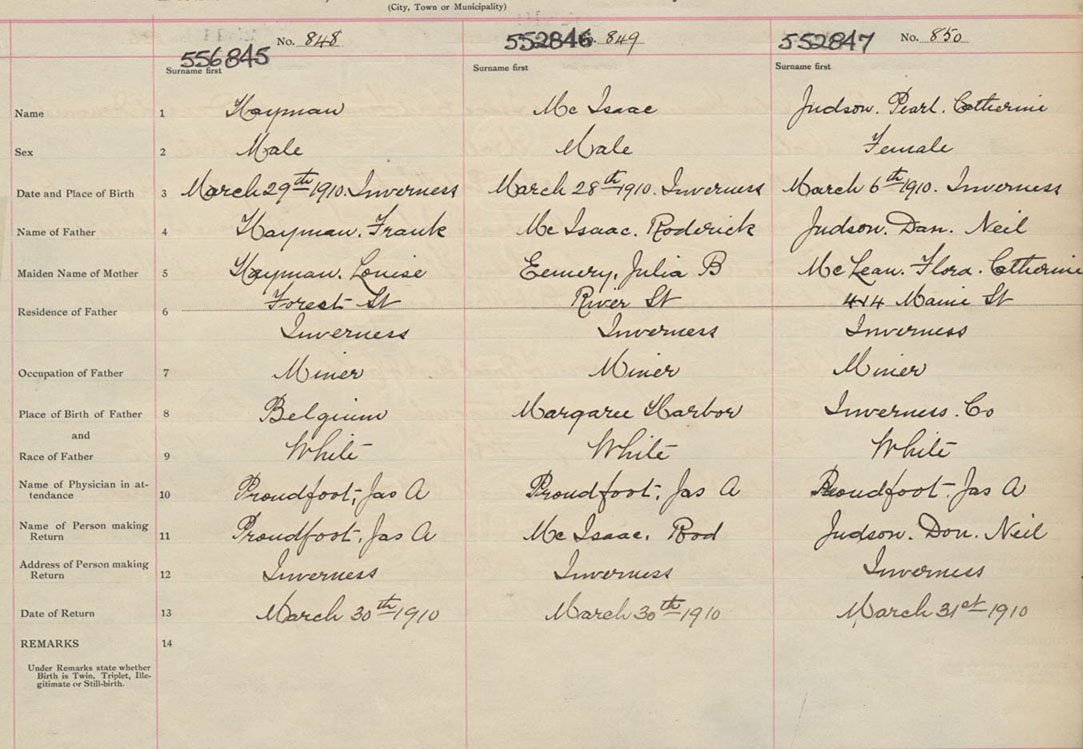 (City, Town or Municipality)
No. 848
556845
Surname first
552846 849
Surname first
552847 No. 850
Surname first
Name 1 Hayman Mc Isaac Judson. Pearl. Catherine
Sex 2 Male Male Female
Date and Place of Birth 3 March 29th 1910. Inverness March 28th 1910. Inverness March 6th 1910. Inverness
Name of Father 4 Hayman. Frank Mc Isaac. Roderick Judson. Dan. Neil
Maiden Name of Mother 5 Hayman. Louise Eemery, Julia B McLean. Flora. Catherine
Residence of Father 6 Forest St River St 414 Maine St
Inverness Inverness Inverness
Occupation of Father 7 Miner Miner Miner
Place of Birth of Father 8 Belgium Margaree Harbor Inverness. Co
and
Race of Father 9 White White White
Name of Physician in at-
tendance 10 Proudfoot, Jas A Proudfoot, Jas A Proudfoot. Jas A
Name of Person making
Return 11 Proudfoot. Jas A Mc Isaac. Rod Judson. Don. Neil
Address of Person making
Return 12 Inverness Inverness Inverness
Date of Return 13 March 30th 1910 March 30th 1910 March 31st 1910
REMARKS 14
Under Remarks state whether
Birth is Twin, Triplet, Ille-
gitimate or Still-birth.